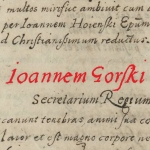 multos mirifice ambivit cum a
per Ioannem Hoienski Epum
d Christianissimum reductus.
Ioannem Gorski
Secretarium Regium
canunt tenebras animi sua co
lavor et est magno corpore no